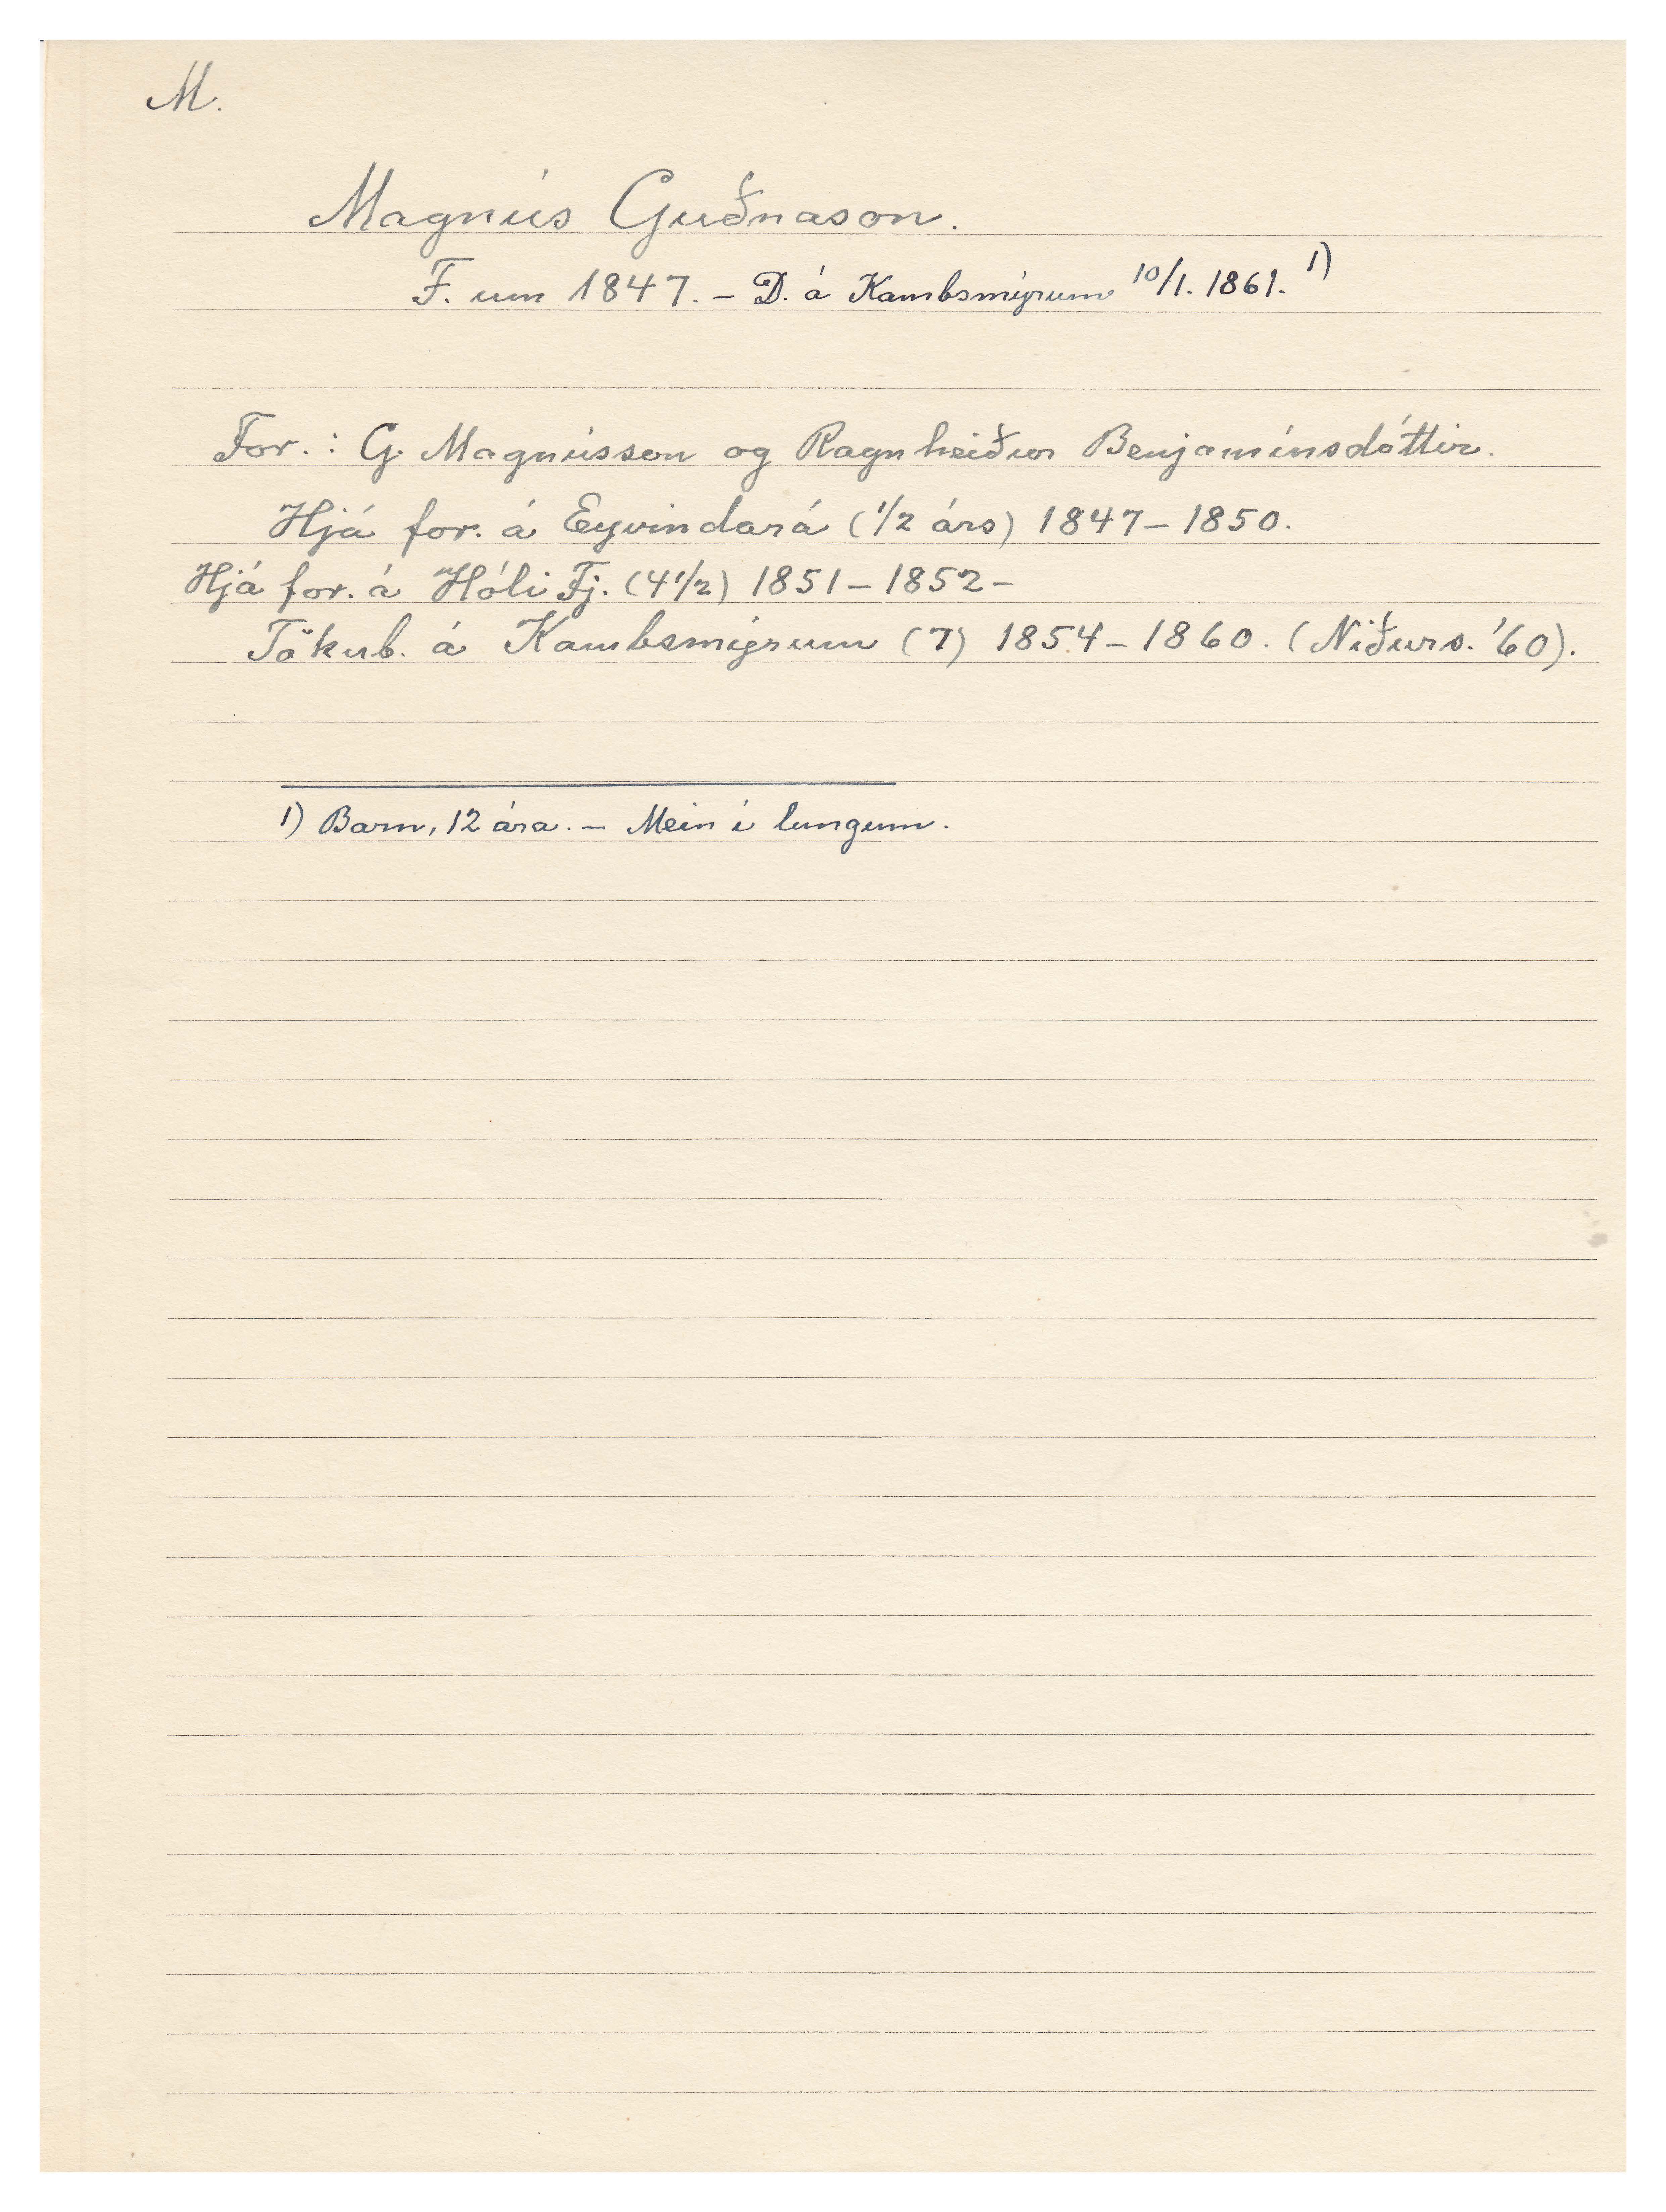 M.
Magnús Guðnason.
F. um 1847. – D. á Kambsmýrum 10/1. 1861. 1)
For.: G. Magnússon og Ragnheiður Benjamínsdóttir.
Hjá for. á Eyvindará (1/2 árs) 1847–1850.
Hjá for. á Hóli Fj. (4 1/2) 1851–1852–
Tökub. á Kambsmýrum (7) 1854–1860. (Niðurs. '60).
1) Barn, 12 ára. – Mein í lungum.